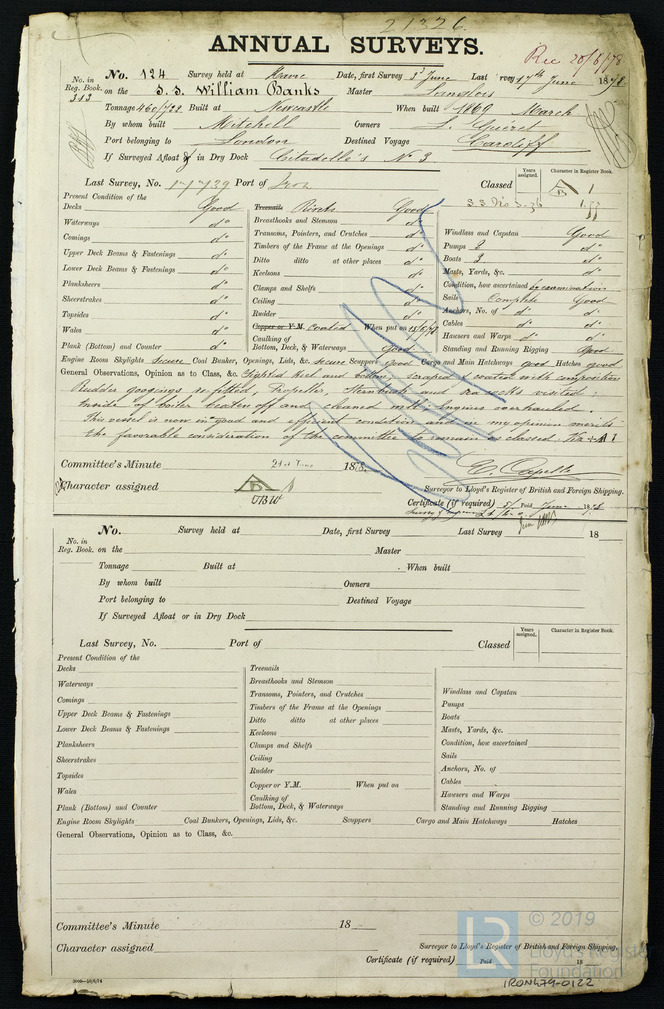 21326
ANNUAL SURVEYS.
Rec 20/6/78
No. in Reg. Book. 313
No. 124 Survey held at Havre Date, first Survey 3d June Last Survey 17th June 1878
on the S. S. William Banks Master Langlois
Tonnage 460/722 Built at Newcastle When built 1869 March
By whom built Mitchell Owners L. Gueret
Port belonging to London Destined Voyage Cardiff
If Surveyed Afloat or in Dry Dock Citadelle's No 3
Last Survey, No. 17739 Port of Iron Classed Years assigned. Character in Register Book.
B 1
Present Condition of the
Decks Good
Waterways do
Comings do
Upper Deck Beams & Fastenings do
Lower Deck Beams & Fastenings do
Planksheers do
Sheerstrakes do
Topsides do
Wales do
Plank (Bottom) and Counter do
Treenails Rivets Good
Breasthooks and Stemson do
Transoms, Pointers, and Crutches do
Timbers of the Frame at the Openings do
Ditto ditto at other places do
Keelsons do
Clamps and Shelfs do
Ceiling do
Rudder do
Copper or Y.M. Coated When put on 15/6/78
Caulking of Bottom, Deck, & Waterways Good
Windlass and Capstan Good
Pumps 2 do
Boats 3 do
Masts, Yards, &c. do
Condition, how ascertained by examination
Sails Complete Good
Anchors, No. of do do
Cables do do
Hawsers and Warps do do
Standing and Running Rigging Good
Engine Room Skylights secure Coal Bunker, Openings, Lids, &c. secure Scuppers good Cargo and Main Hatchways good Hatches good
General Observations, Opinion as to Class, &c. Chipped Keel and bottom, scraped & coated with composition
Rudder googings refitted, Propeller, Sternbush and sea cocks visited;
Inside of boiler beaten off and cleaned out. Engines overhauled.
This vessel is now in good and efficient condition and in my opinion merits
the favorable consideration of the committee to remain as classed
Committee's Minute 21st June 1878
Character assigned B 1
Surveyor to Lloyd's Register of British and Foreign Shipping.
Certificate (if required) Paid June 1878
No. in Reg. Book.
No. Survey held at Date, first Survey Last Survey 18
on the Master
Tonnage Built at When built
By whom built Owners
Port belonging to Destined Voyage
If Surveyed Afloat or in Dry Dock
Last Survey, No. Port of Classed Years assigned. Character in Register Book.
Present Condition of the
Decks
Waterways
Comings
Upper Deck Beams & Fastenings
Lower Deck Beams & Fastenings
Planksheers
Sheerstrakes
Topsides
Wales
Plank (Bottom) and Counter
Treenails
Breasthooks and Stemson
Transoms, Pointers, and Crutches
Timbers of the Frame at the Openings
Ditto ditto at other places
Keelsons
Clamps and Shelfs
Ceiling
Rudder
Copper or Y.M. When put on
Caulking of Bottom, Deck, & Waterways
Windlass and Capstan
Pumps
Boats
Masts, Yards, &c.
Condition, how ascertained
Sails
Anchors, No. of
Cables
Hawsers and Warps
Standing and Running Rigging
Engine Room Skylights Coal Bunkers, Openings, Lids, &c. Scuppers Cargo and Main Hatchways Hatches
General Observations, Opinion as to Class, &c.
Committee's Minute 18
Character assigned
Surveyor to Lloyd's Register of British and Foreign Shipping.
Certificate (if required) Paid 18
LR
© 2019
Lloyd's Register
Foundation
IRON479-0122